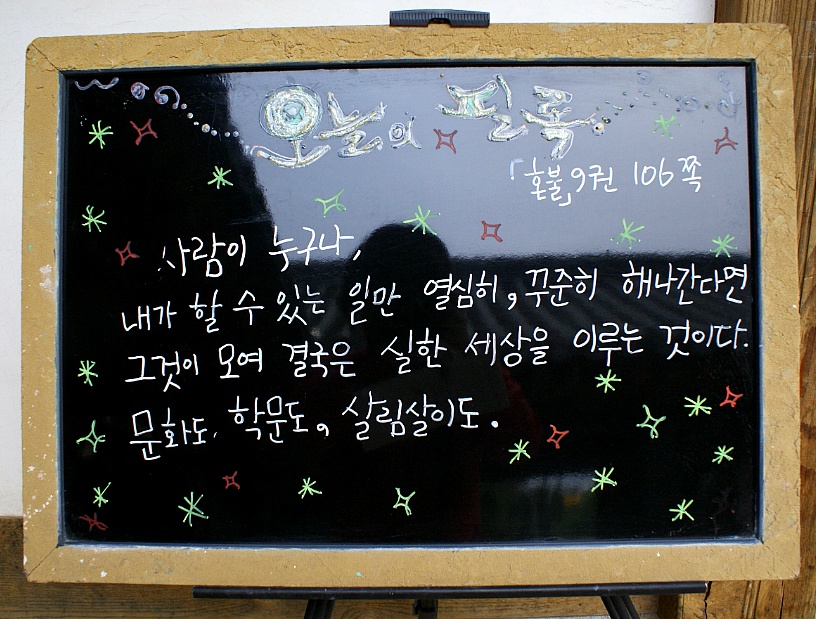 오늘의 필록
「혼불」9권 106쪽
사람이 누구나,
내가 할 수 있는 일만 열심히, 꾸준히 해나간다면
그것이 모여 결국은 실한 세상을 이루는 것이다.
문화도, 학문도, 살림살이도.